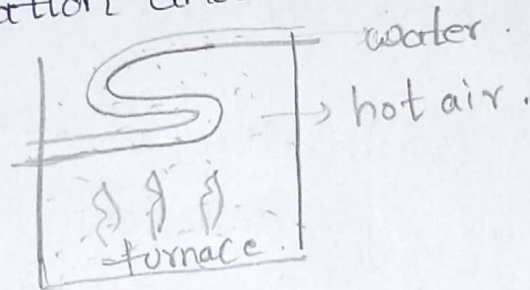 water.
hot air.
furnace.